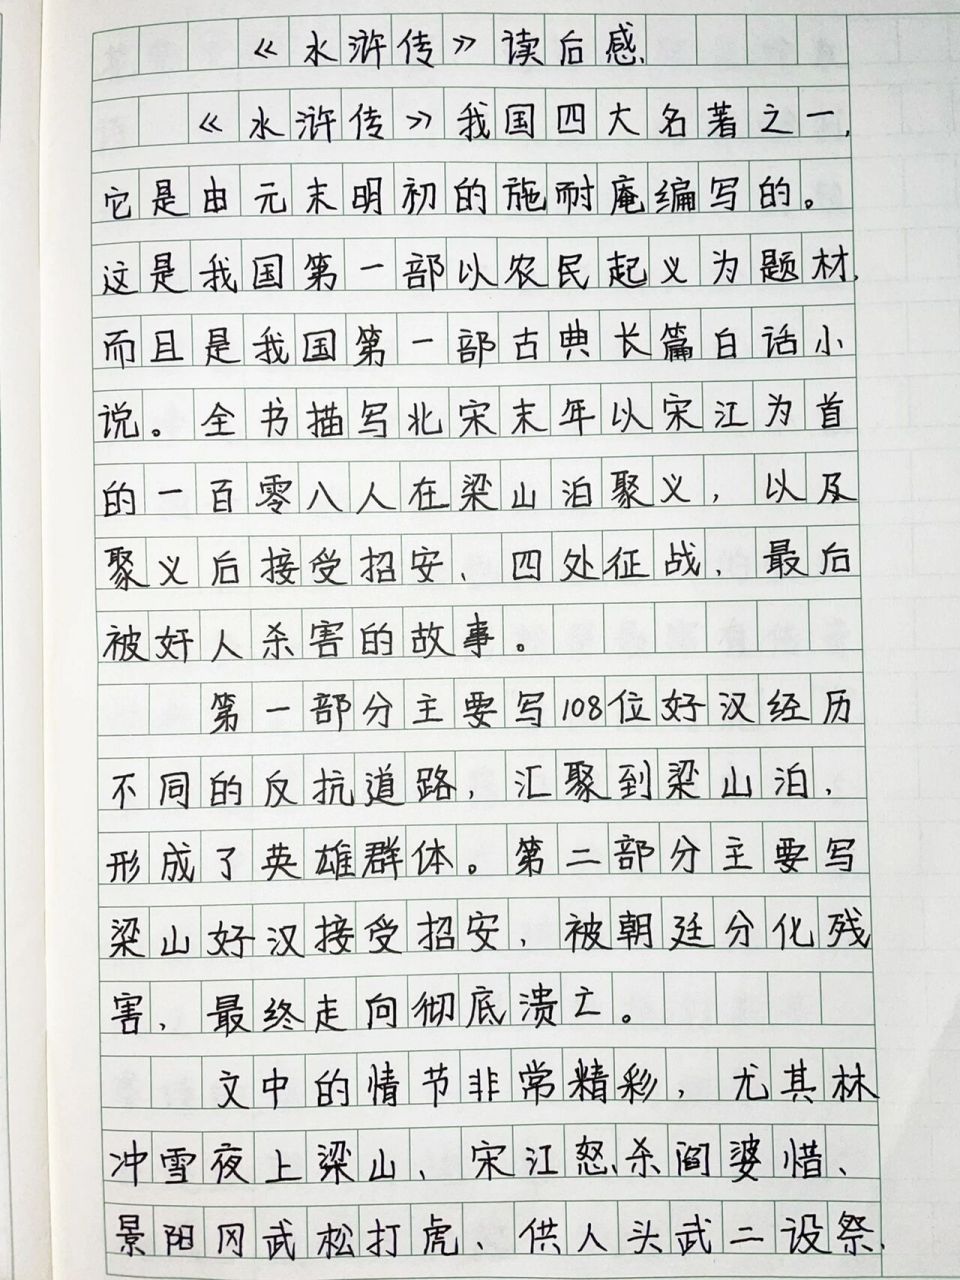 《水浒传》读后感
《水浒传》我国四大名著之一,
它是由元末明初的施耐庵编写的。
这是我国第一部以农民起义为题材,
而且是我国第一部古典长篇白话小
说。全书描写北宋末年以宋江为首
的一百零八人在梁山泊聚义，以及
聚义后接受招安、四处征战，最后
被奸人杀害的故事。
第一部分主要写108位好汉经历
不同的反抗道路，汇聚到梁山泊，
形成了英雄群体。第二部分主要写
梁山好汉接受招安，被朝廷分化残
害，最终走向彻底溃亡。
文中的情节非常精彩，尤其林
冲雪夜上梁山、宋江怒杀阎婆惜、
景阳冈武松打虎、供人头武二设祭,